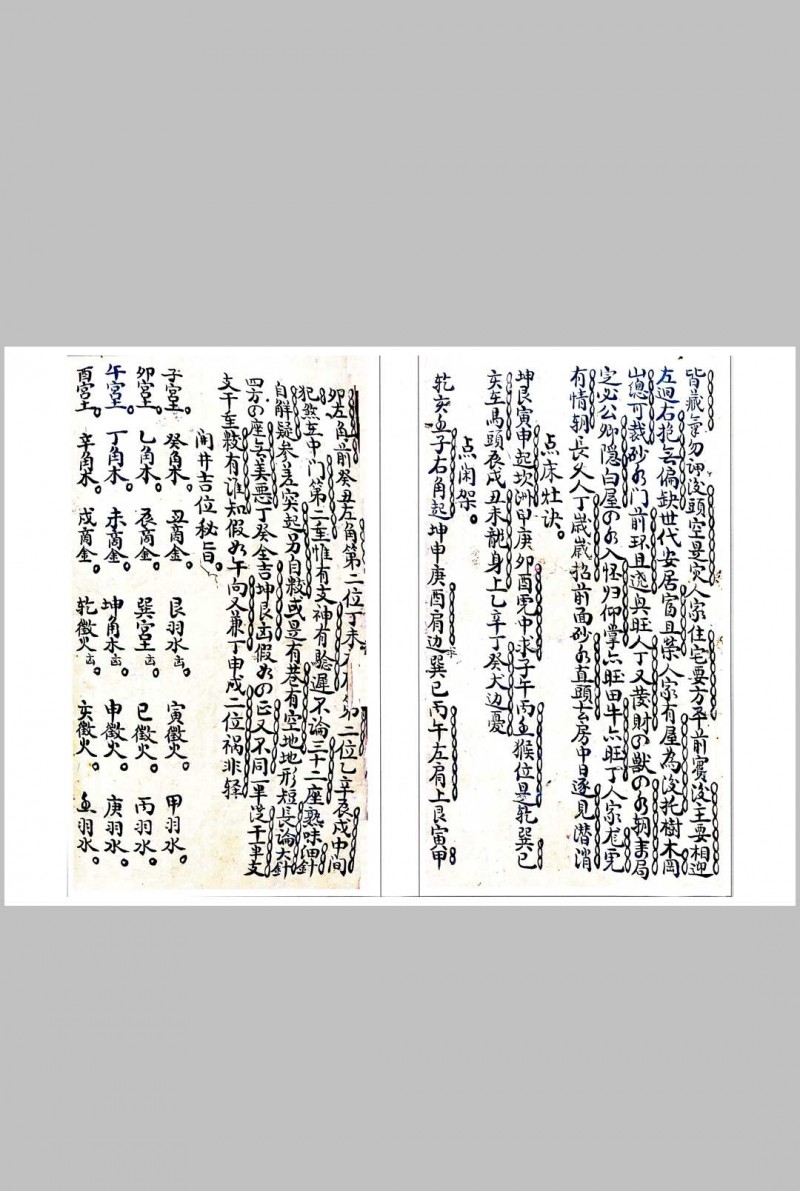 皆藏氣勿卯後頭空是災人家住宅要方平前賓後主要相迎
左迴右抱無偏缺世代安居富且榮人家有屋為後托樹木岡
山總可裁砂水門前环且遶奥旺人丁又發財の獸の水朝局
定必公卿隐白屋の水入怀归仰掌点旺田牛点旺丁人家
有情朝長久人丁歲歲招前面砂水直頭去房中日逐見潜消
点床灶诀。
坤艮寅申起坎洲甲庚卯酉兜中求子午丙壬猴位是乾巽巳
亥在馬頭辰戌丑未龍身上乙辛丁癸犬边憂
点闲架。
乾亥壬子右角起坤申庚酉肩边巽巳丙午左肩上艮寅甲
卯左角前癸丑左角第二位丁未第二位乙辛辰戌中间
犯煞在中门第二座惟有支神有驗遲不論三十二座熟味细針
自解疑参差突起另自殺或是有巷有空地地形短長論大針
四方の座無美惡丁癸全吉坤艮凶假水の正又不同一車從干車支
支干至殺有誰知假水午向又兼丁申戌二位祸非轻
闲井吉位秘旨。
子宫土。 癸角木。 丑商金。 艮羽水凶。 寅徵火。 甲羽水。
卯宫土。 乙角木。 辰商金。 巽宫土凶。 巳徵火。 丙羽水。
午宫土。 丁角木。 未商金。 坤角木凶。 申徵火。 庚羽水。
酉宫土。 辛角木。 戌商金。 乾徵火凶。 亥徵火。 壬羽水。